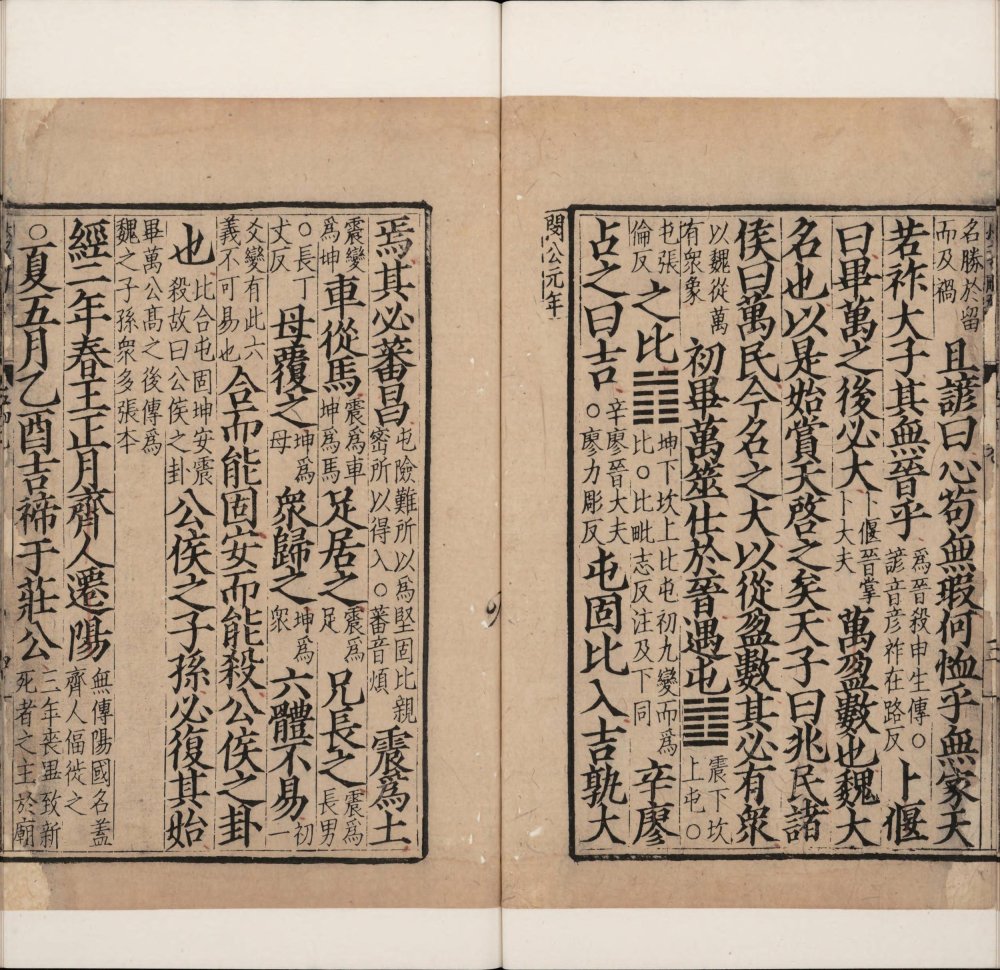 名勝於留而及禍 且諺曰心苟無瑕何恤乎無家天
若祚大子其無晉乎 爲晉殺申生傳○諺音彦祚在路反 卜偃
曰畢萬之後必大 卜偃晉掌卜大夫 萬盈數也魏大
名也以是始賞天啓之矣天子曰兆民諸
侯曰萬民今名之大以從盈數其必有衆
以魏從萬有衆象 初畢萬筮仕於晉遇屯䷂ 震下坎上屯○
屯張倫反 之比䷇ 坤下坎上比屯初九變而爲比○比毗志反注及下同 辛廖
占之曰吉 辛廖晉大夫○廖力彫反 屯固比入吉孰大
閔公元年
焉其必蕃昌 屯險難所以爲堅固比親密所以得入○蕃音煩 震爲土
震變爲坤 車從馬 震爲車坤爲馬 足居之 震爲足 兄長之 震爲長男
○長丁丈反 母覆之 坤爲母 衆歸之 坤爲衆 六體不易 初一
爻變有此六義不可易也 合而能固安而能殺公侯之卦
也 比合屯固坤安震殺故曰公侯之卦 公侯之子孫必復其始
畢萬公高之後傳爲魏之子孫衆多張本
經二年春王正月齊人遷陽 無傳陽國名蓋齊人偪徙之
○夏五月乙酉吉禘于莊公 三年喪畢致新死者之主於廟